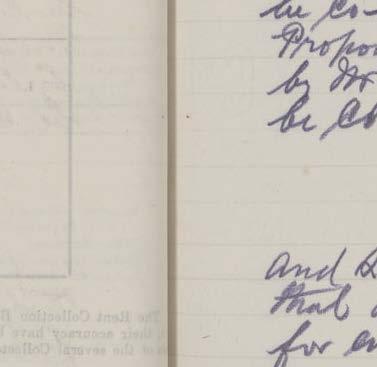 be co-
Propo
by Mr
be Ch
and
that
for
The Rent Collection B
their accuracy have b
of the several Collecto